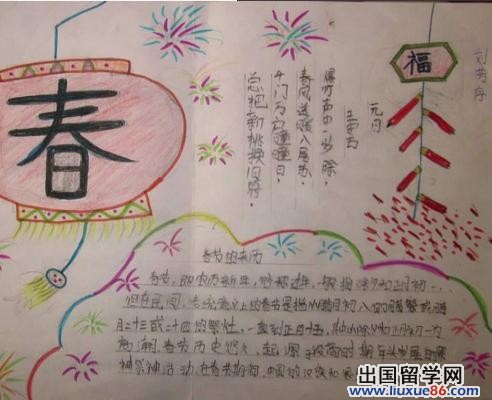 春
福
元月
王安石
爆竹声中一岁除，
春风送暖入屠苏。
千门万户瞳瞳日，
总把新桃换旧符。
春节的来历
春节，即农历新年，俗称过年，一般指除夕和正月初一。
但在民间，传统意义上的春节是指从腊月初八的腊祭或腊
月二十三或二十四的祭灶，一直到正月十五，其中以除夕和正月初一为
高潮。春节历史悠久，起源于殷商时期年头岁尾的祭
神祭祖活动。在春节期间，中国的汉族和
出国留学网
www.liuxue86.com